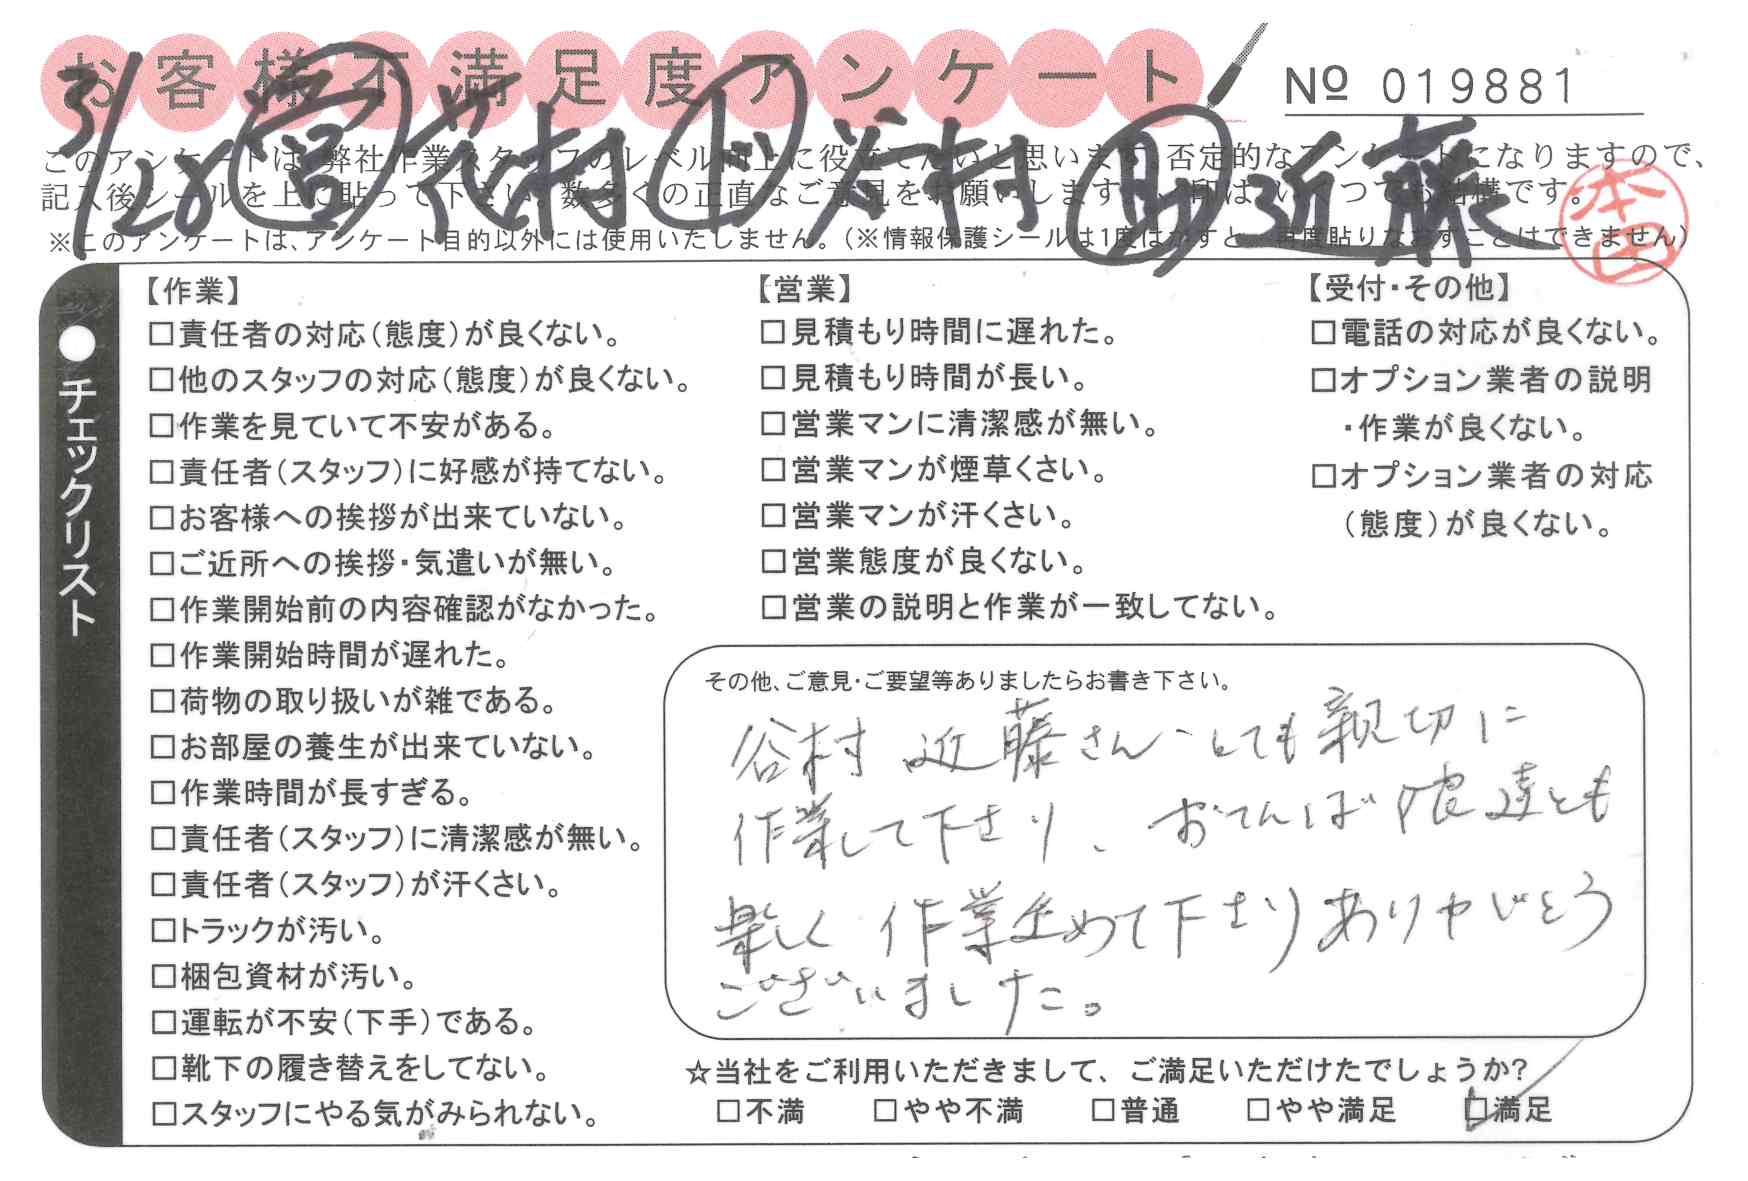 お客様不満足度アンケート
№ 019881
3/28 営 花村 ド 谷村 助 近藤
このアンケートは、弊社作業スタッフのレベル向上に役立てたいと思います。否定的なアンケートになりますので、
記入後シールを上に貼って下さい。数多くの正直なご意見をお願いします。
本田
※このアンケートは、アンケート目的以外には使用いたしません。(※情報保護シールは1度はがすと、再度貼りなおすことはできません)
●チェックリスト
【作業】
□責任者の対応(態度)が良くない。
□他のスタッフの対応(態度)が良くない。
□作業を見ていて不安がある。
□責任者(スタッフ)に好感が持てない。
□お客様への挨拶が出来ていない。
□ご近所への挨拶・気遣いが無い。
□作業開始前の内容確認がなかった。
□作業開始時間が遅れた。
□荷物の取り扱いが雑である。
□お部屋の養生が出来ていない。
□作業時間が長すぎる。
□責任者(スタッフ)に清潔感が無い。
□責任者(スタッフ)が汗くさい。
□トラックが汚い。
□梱包資材が汚い。
□運転が不安(下手)である。
□靴下の履き替えをしてない。
□スタッフにやる気がみられない。
【営業】
□見積もり時間に遅れた。
□見積もり時間が長い。
□営業マンに清潔感が無い。
□営業マンが煙草くさい。
□営業マンが汗くさい。
□営業態度が良くない。
□営業の説明と作業が一致してない。
【受付・その他】
□電話の対応が良くない。
□オプション業者の説明
・作業が良くない。
□オプション業者の対応
(態度)が良くない。
その他、ご意見・ご要望等ありましたらお書き下さい。
谷村 近藤さん、とても親切に
作業して下さり、おてんば娘達とも
楽しく 作業進めて下さりありがとう
ございました。
☆当社をご利用いただきまして、ご満足いただけたでしょうか?
□不満 □やや不満 □普通 □やや満足 □満足